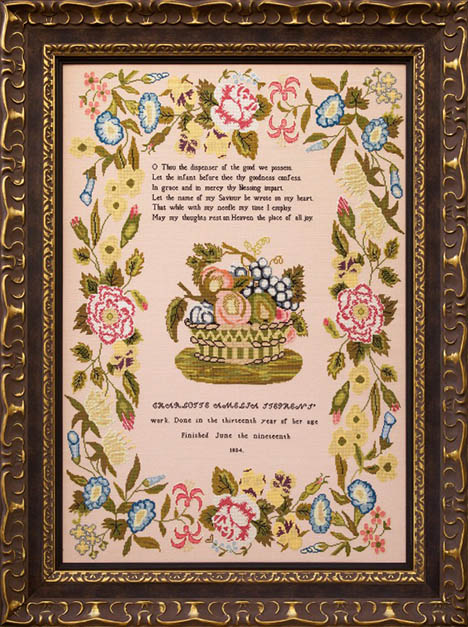 O Thou the dispenser of the good we possess.
Let the infant before thee thy goodness confess.
In grace and in mercy thy blessing impart.
Let the name of my Saviour be wrote in my heart.
That while with my needle my time I employ.
May my thoughts rest on Heaven the place of all joy.
CHARLOTTE AMELIA STEPHENS'
work. Done in the thirteenth year of her age
Finished June the nineteenth
1834.